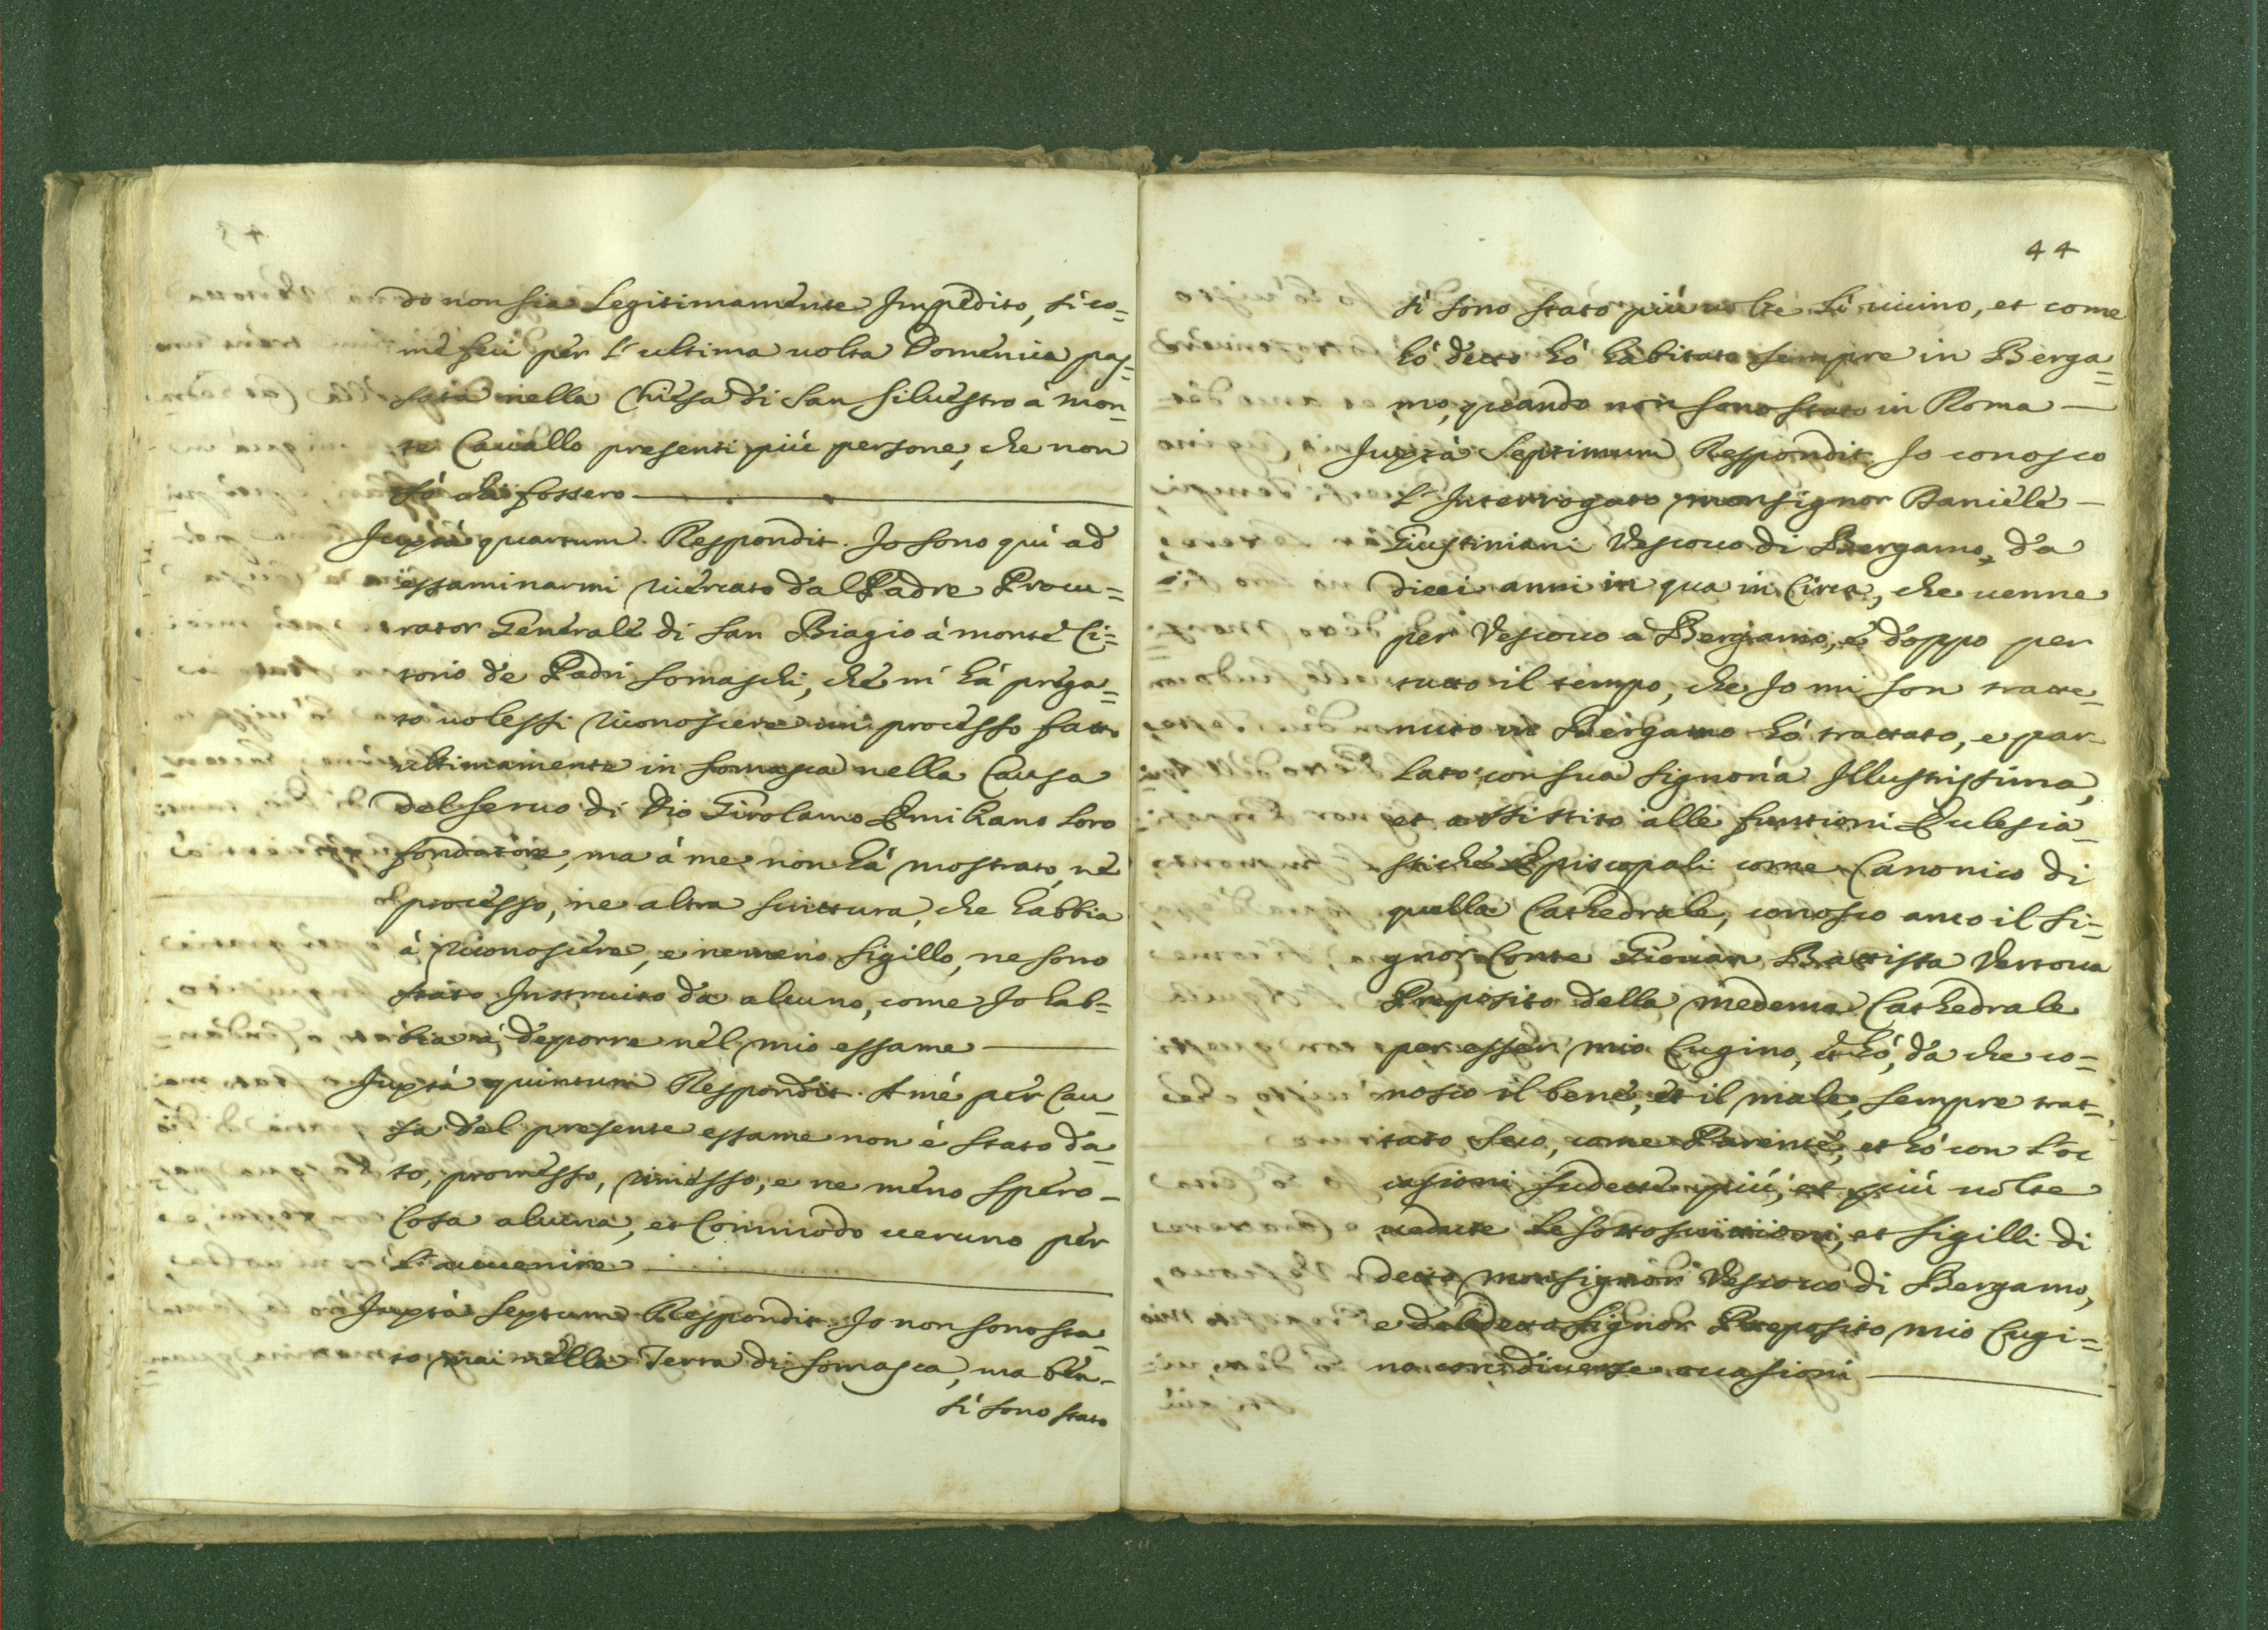 do non sia Legitimamente Impedito, sì co=
me feci per l'ultima uolta Domenica pas=
sata nella Chiesa di San Siluestro à Mon=
te Cauallo presenti più persone, che non
sò chi fossero
Juxtà quartum Respondit. Io sono quì ad
essaminarmi ricercato dal Padre Procu=
rator Generale di San Biagio à monte Ci=
torio de Padri Somaschi, che m'hà prega=
to uolessi riconoscere un processo fatto
ultimamente in Somasca nella Causa
del Seruo di Dio Girolamo Emiliano loro
fondatore, ma à me non hà mostrato, nè
processo, ne altra scrittura, che habbia
à riconoscere, e nemeno sigillo, ne sono
stato Instruito da alcuno, come Io hab=
bia à deporre nel mio essame
Juxtà quintum Respondit. A me per Cau=
sa del presente essame non è stato da=
to, promesso, rimesso, e ne meno spero
Cosa alcuna, et Commodo ueruno per
l'auuenire
Juxtà Sextum Respondit. Io non sono sta=
to mai nella Terra di Somasca, ma ben=
sì sono stato
44
sì sono stato più uolte lì uicino, et come
hò detto hò habitato sempre in Berga=
mo, quando non sono stato in Roma
Juxtà Septimum Respondit. Io conosco
l'Interrogato monsignor Daniele
Giustiniani Vescouo di Bergamo, da
dieci anni in qua in Circa, che uenne
per Vescouo a Bergamo, e doppo per
tutto il tempo, che Io mi son tratte=
nuto in Bergamo hò trattato, e par=
lato con sua Signoria Illustrissima,
et assistito alle funtioni Eclesia=
stiche Episcopali come Canonico di
quella Cathedrale, conosco anco il Si=
gnor Conte Giouan Battista Vertoua
Preposito della medema Cathedrale
per esser mio Cugino, et hò, da che co=
nosco il bene, et il male, sempre trat=
tato seco, come Parente, et hò con l'oc
casioni sudette più, et più uolte
uedute le sottoscrittioni, et sigilli di
detto monsignor Vescouo di Bergamo,
e del detto Signor Preposito mio Cugi=
no con diuerse occasioni